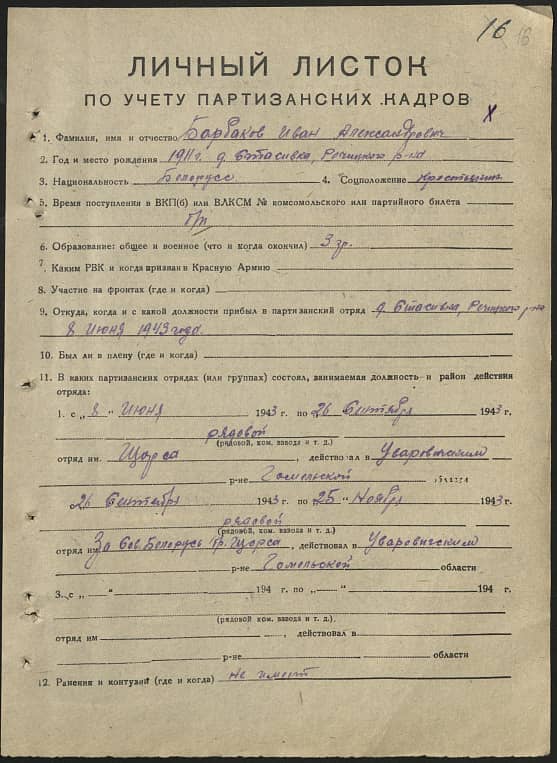 16 16
ЛИЧНЫЙ ЛИСТОК
ПО УЧЕТУ ПАРТИЗАНСКИХ КАДРОВ
1. Фамилия, имя и отчество Барбаков Иван Александрович
2. Год и место рождения 1911 г. д. Стасивка, Речицкого р-на
3. Национальность Белорусс 4. Соцположение крестьянин
5. Время поступления в ВКП(б) или ВЛКСМ № комсомольского или партийного билета
б/п
6. Образование: общее и военное (что и когда окончил) 3 гр.
7. Каким РВК и когда призван в Красную Армию
8. Участие на фронтах (где и когда)
9. Откуда, когда и с какой должности прибыл в партизанский отряд д. Стасивка, Речицкого р-на
8 Июня 1943 года.
10. Был ли в плену (где и когда)
11. В каких партизанских отрядах (или группах) состоял, занимаемая должность и район действия
отряда:
1. с „8" Июня 1943 г. по 26 Сентября 1943 г.
рядовой
(рядовой, ком. взвода и т. д.)
отряд им. Щорса, действовал в Уваровичском
р-не Гомельской области
26 Сентября 1943 г. по 25 " Ноября 1943 г.
рядовой
(рядовой, ком. взвода и т. д.)
отряд им За Сов. Белорусь бр. Щорса, действовал в Уваровичским
р-не Гомельской области
3. с „—" 194 г. по „—" 194 г.
(рядовой, ком. взвода и т. д.)
отряд им , действовал в
р-не области
12. Ранения и контузии (где и когда) не имеет